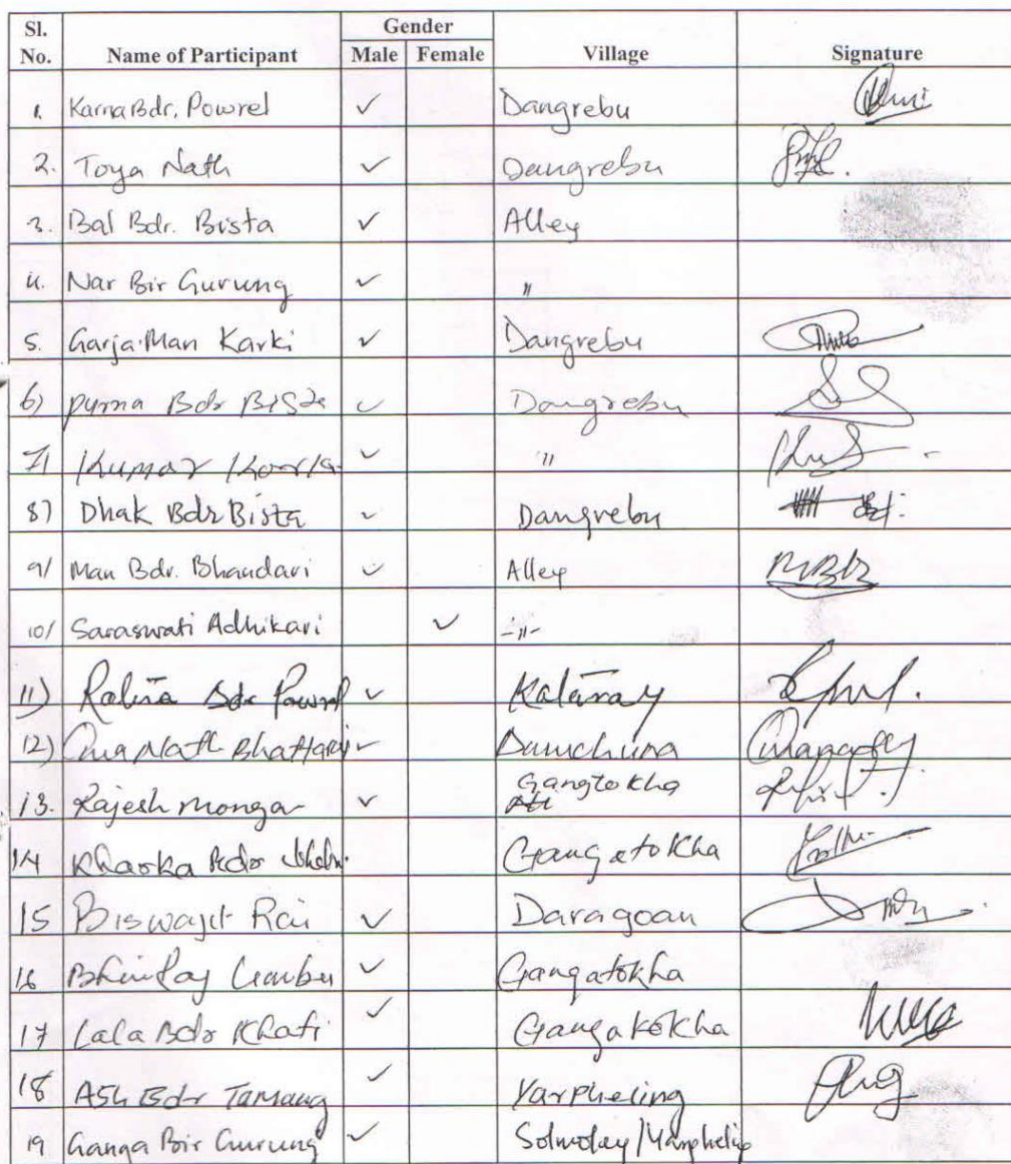 Sl. No. Name of Participant Gender Male Female Village Signature
1. Karna Bdr. Powrel ✓ Dangrebu
2. Toya Nath ✓ Dangrebu
3. Bal Bdr. Bista ✓ Alley
4. Nar Bir Gurung ✓ "
5. Garja Man Karki ✓ Dangrebu
6) Purna Bdr Bista ✓ Dangrebu
7) Kumar ✓ "
8) Dhak Bdr Bista ✓ Dangrebu
9/ Man Bdr. Bhandari ✓ Alley
10/ Saraswati Adhikari ✓ -"-
11) Bdr Powrel ✓
12) Nath Bhattarai ✓ Damchuna
13. Rajesh Mongar ✓ Gangtokha
14 Kharka Bdr Gangatokha
15 Biswajit Rai ✓ Daragoan
16 ✓ Gangatokha
17 Lala Bdr Khati ✓ Gangakokha
18 Ash Bdr Tamang ✓ Yarpheling
19 Ganga Bir Gurung ✓